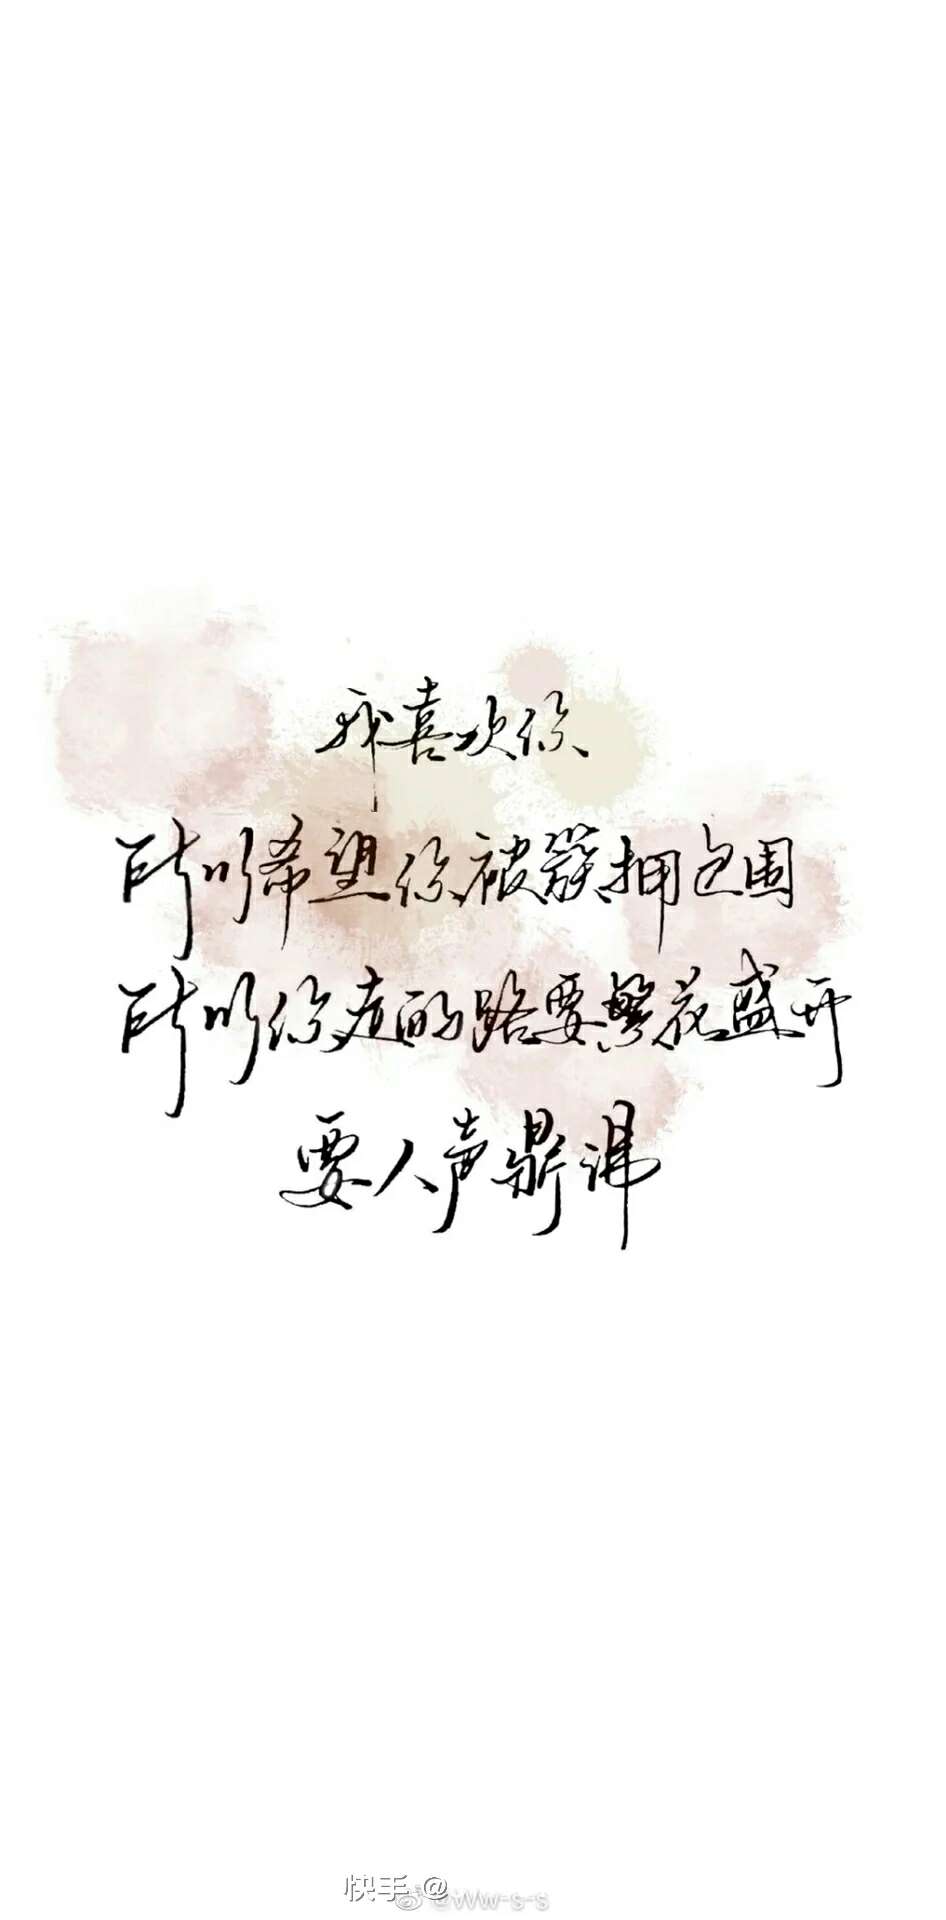 我喜欢你
所以希望你被簇拥包围
所以你走的路要繁花盛开
要人声鼎沸
快手 @
@iWw-s-s